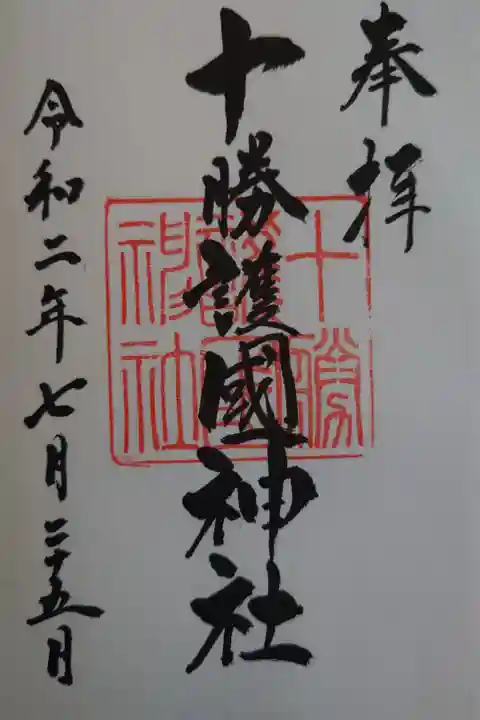 奉拝
十勝護國神社
令和二年七月二十五日
十勝護國神社